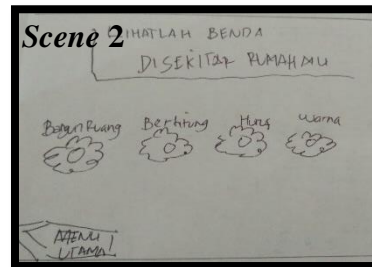 Scene 2
LIHATLAH BENDA
DISEKITAR RUMAHMU
Bangun Ruang Berhitung Huruf Warna
MENU
UTAMA